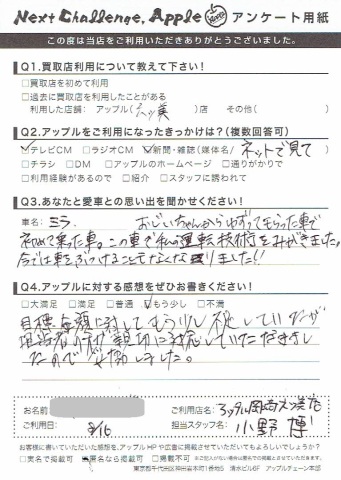 Next Challenge, Apple アンケート用紙
この度は当店をご利用いただきありがとうございました。
Q1.買取店利用について教えて下さい!
□買取店を初めて利用
□過去に買取店を利用したことがある
利用した店舗: アップル( )店 その他( )
Q2.アップルをご利用になったきっかけは?(複数回答可)
☑テレビCM □ラジオCM ☑新聞・雑誌(媒体名/ ネットで見て )
□チラシ □DM □アップルのホームページ □通りがかりで
□利用経験があるので □紹介 □スタッフに誘われて
Q3.あなたと愛車との思い出を聞かせください!
車名: ミラ. おじいちゃんからゆずってもらった車で
初めて乗った車。この車で私の運転技術をみがきました。
今では車をぶつけることもなくなりました!!
Q4.アップルに対する感想をぜひお書きください!
□大満足 □満足 □普通 ☑もう少し □不満
目標金額に対してもう少し不足していたが
担当者の方が親切に対応していただきまし
たので しました。
お名前
ご利用店名: アップル岡崎 店
ご利用日: 8/16
担当スタッフ名: 小野 博
お客様に書いていただいた感想を、アップルHPや広告に掲載させていただいてもよろしいでしょうか?
□実名で掲載可 ☑匿名なら掲載可 □掲載不可 ※ご記入がない場合は匿名での掲載とさせていただきます。
東京都千代田区神田岩本町1番地5 清水ビル6F アップルチェーン本部